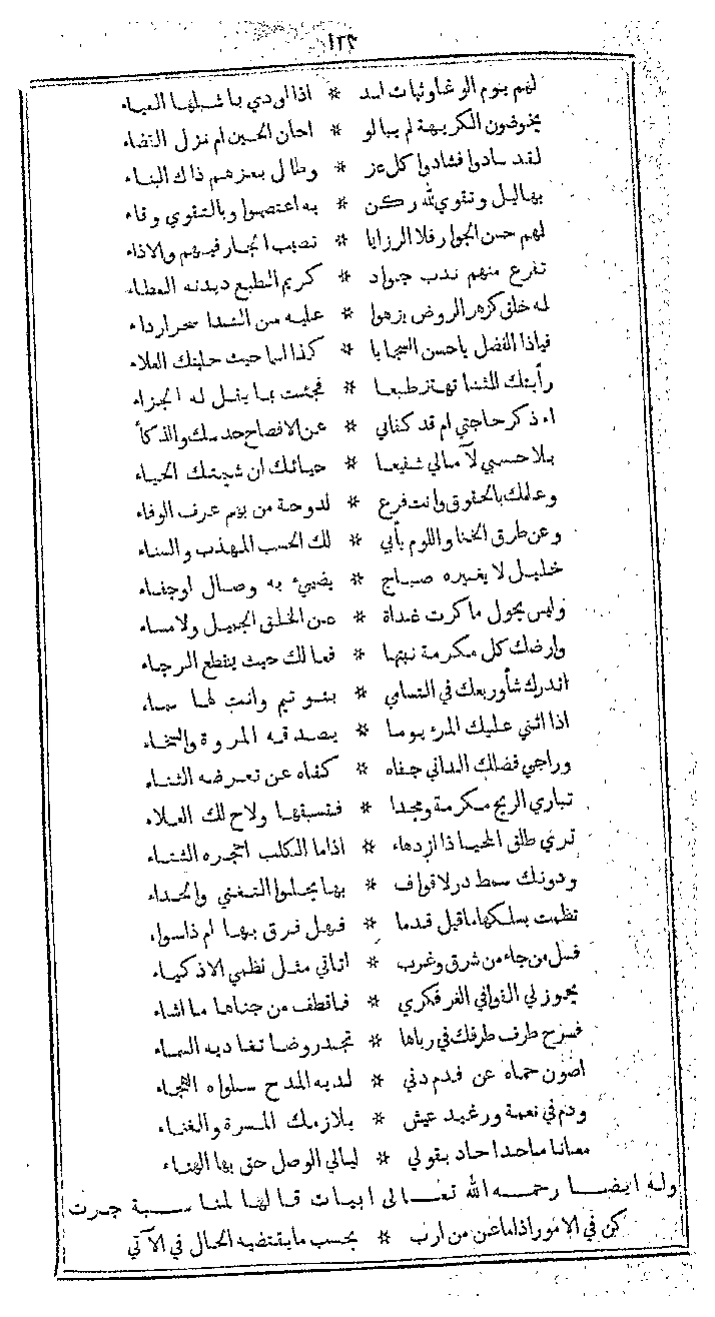 ١٣٦
لهم يوم الوغا وثبات اسد * اذا اودي باشبلها العياء
يخوضون الكريهة لم يبالو * احان الحين ام نزل القضاء
لقد سادوا فشادوا كل عز * وطال بعزهم ذاك البناء
بهاليل وتقوي لله ركن * به اعتصموا وبالتقوي وقاء
لهم حسن الجوار فلا الرزايا * تصيب الجار فيهم والاذاء
تفرع منهم ندب جواد * كريم الطبع ديدنه العطاء
له خلق كزهر الروض يزهوا * عليه من الشذا سحرا رداء
فياذا الفضل ياحسن السجايا * كذا السما حيث حليتك العلاء
رأيتك للثنا تهتز طبعا * فجئت بما يثل له الجزاء
اء ذكر حاجتي ام قد كفاني * عن الافصاح حدسك والذكأ
بلا حسبي لآمالي شفيعا * حيائك ان شيمتك الحياء
وعلمك بالحقوق وانت فرع * لدوحة من بهم عرف الوفاء
وعن طرق الخنا واللوم يأبي * لك الحسب المهذب والسناء
خليل لا يغيره صباح * يضيئ به وصال اوجفاء
وليس يحول ما كرت غداة * عن الخلق الجميل ولا مساء
وارضك كل مكرمة نبتها * فما لك حيث ينقطع الرجاء
اتدرك شأو ربعك في التسامي * بنو تيم وانت لها سماء
اذا اثني عليك المرء يوما * يصدقه المروة والسخاء
وراجي فضلك الداني جفاه * كفاه عن تعرضه الثناء
تباري الريح مكرمة ومجدا * فتسبقها ولاح لك العلاء
تري طلق المحيا ذا ازدهاء * اذاما الكلب احجره الشتاء
ودونك سمط در لا قواف * بها يحلوا التغني والحداء
نظمت بسلكها ماقيل قدما * فهل فرق بها ام ذا سواء
فسل من جاء من شرق وغرب * اتاتي مثل نظمي الاذكياء
يحوز لي القوافي الغر فكري * فاقطف من جناها ما اشاء
فسرح طرف طرفك في رباها * تجد روضا تغاديه السماء
اصون حماه عن فدم دني * لديه المدح سلواه الهجاء
ودم في نعمة ورغيد عيش * يلازمك المسرة والغناء
معانا ماحدا حاد بقولي * ليالي الوصل حق بها الهناء
وله ايضا رحمه الله تعالى ابيات قالها لمناسبة جرت
كن في الامور اذاماعن من ارب * بحسب مايقتضيه الحال في الآتي